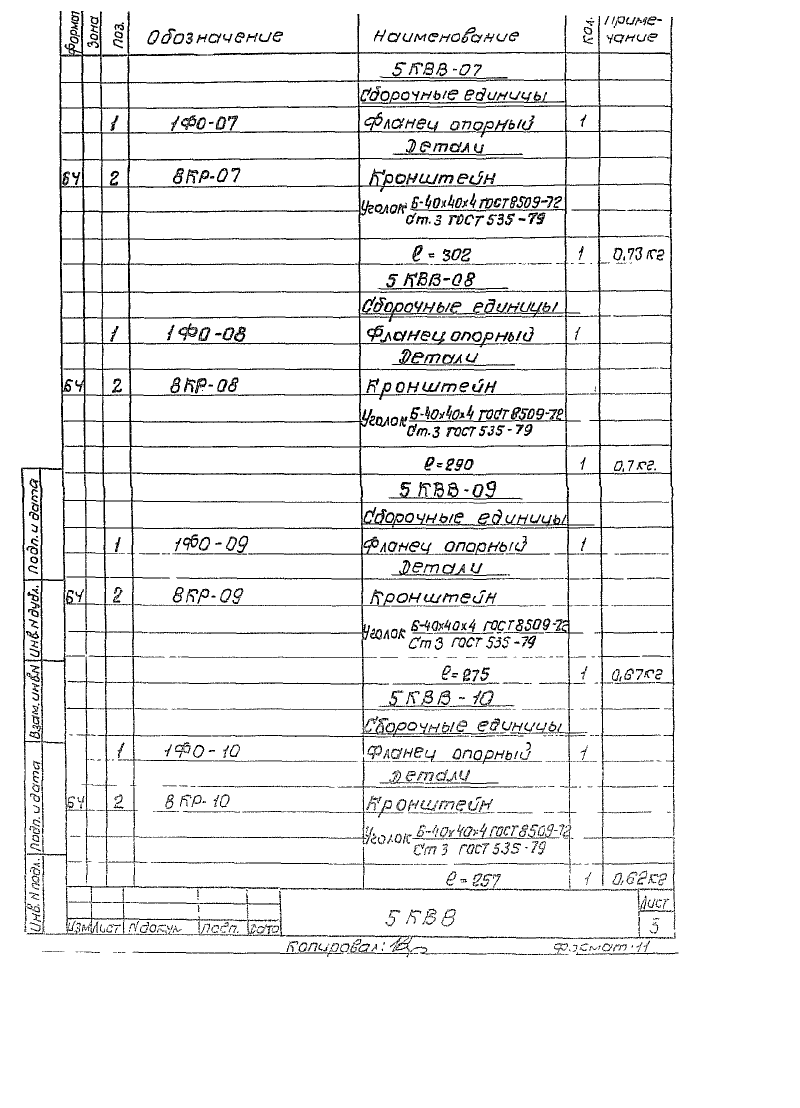 Формат Зона Поз. Обозначение Наименование Кол. Приме-
чание
5КВВ-07
Сборочные единицы
1 1ФО-07 Фланец опорный 1
Детали
БЧ 2 8КР-07 Кронштейн
Уголок Б-40х40х4 ГОСТ 8509-72
Ст.3 ГОСТ 535-79
ℓ=302 1 0,73 кг
5КВВ-08
Сборочные единицы
1 1ФО-08 Фланец опорный 1
Детали
БЧ 2 8КР-08 Кронштейн
Уголок Б-40х40х4 ГОСТ 8509-72
Ст.3 ГОСТ 535-79
ℓ=290 1 0,7кг.
5КВВ-09
Сборочные единицы
1 1ФО-09 Фланец опорный 1
Детали
БЧ 2 8КР-09 Кронштейн
Уголок Б-40х40х4 ГОСТ 8509-72
Ст 3 ГОСТ 535-79
ℓ=275 1 0,67кг
5КВВ-10
Сборочные единицы
1 1ФО-10 Фланец опорный 1
Детали
БЧ 2 8КР-10 Кронштейн
Уголок Б-40х40х4 ГОСТ 8509-72
Ст 3 ГОСТ 535-79
ℓ=257 1 0,62кг
Инв. N подл. Подп. и дата Взам. инв. N Инв. N дубл. Подп. и дата
Изм Лист N докум Подп. Дата
5КВВ
Лист
3
Копировал:
Формат 11